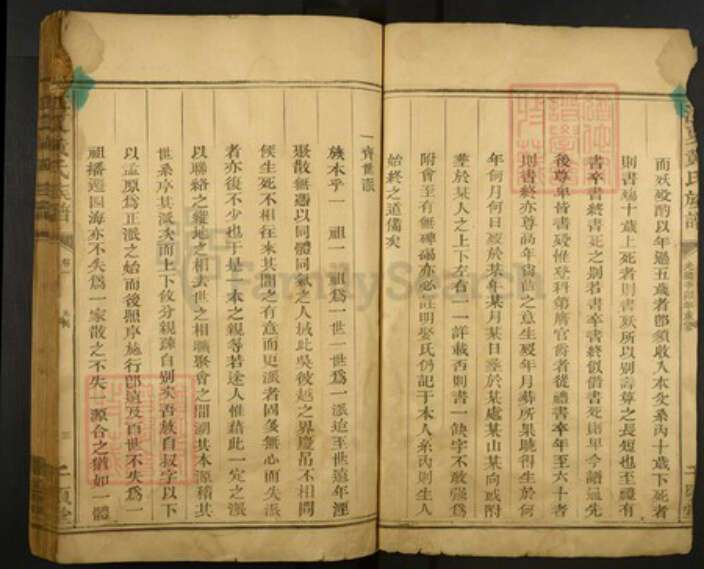 而妖殁酌以年過五歲者卽須敢入本支系內十歲下死者
則書殤十歲上死者則書妖所以別壽算之長短也至禮有
書卒書終書死之別若書卒書終似借書死則早今譜遵先
後尊卑皆書殁惟登科第膺官爵者從禮書卒年至六十者
則書終亦尊高年尚齒之意生殁年月葬所果曉得生於何
年何月何日殁於某年某月某日塟於某處某山某向或附
塟於某人之上下左右一一詳載否則書一缺字不敢强爲
附會至有無碑碣亦必註明娶氏仍記于本人系內則生人
始終之道備矣
一齊世派
族本乎一祖一祖爲一世一世爲一派迨至世遠年湮
聚散無選以同體同氣之人域此吳彼越之界慶吊不相問
候生死不相往來其間之有意而更派者固多無心而失派
者亦復不少也于是一本之親等若途人惟藉此一定之派
以聯絡之縱地之相去世之相曠聚會之間溯其本源稽其
世系序其派次而上下攸分親疎自別矣吾族自叔字以下
以孟原爲正派之始而後照序施行卽遠及百世不失爲一
祖播遷四海亦不失爲一家散之不失一源合之猶如一體
黃氏族譜
卷一
FamilySearch